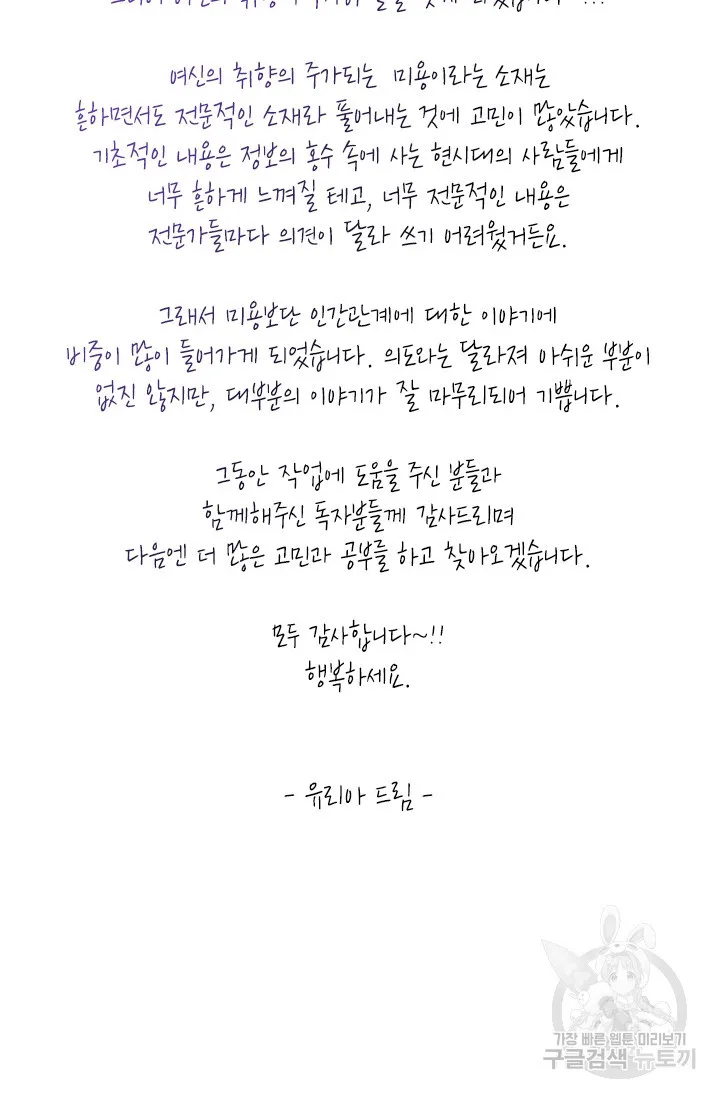 여신의 취향의 주가되는 미용이라는 소재는
흔하면서도 전문적인 소재라 풀어내는 것에 고민이 많았습니다.
기초적인 내용은 정보의 홍수 속에 사는 현시대의 사람들에게
너무 흔하게 느껴질 테고, 너무 전문적인 내용은
전문가들마다 의견이 달라 쓰기 어려웠거든요.
그래서 미용보단 인간관계에 대한 이야기에
비중이 많이 들어가게 되었습니다. 의도와는 달라져 아쉬운 부분이
없진 않지만, 대부분의 이야기가 잘 마무리되어 기쁩니다.
그동안 작업에 도움을 주신 분들과
함께해주신 독자분들께 감사드리며
다음엔 더 많은 고민과 공부를 하고 찾아오겠습니다.
모두 감사합니다~!!
행복하세요.
- 유리아 드림 -
가장 빠른 웹툰 미리보기
구글검색 뉴토끼